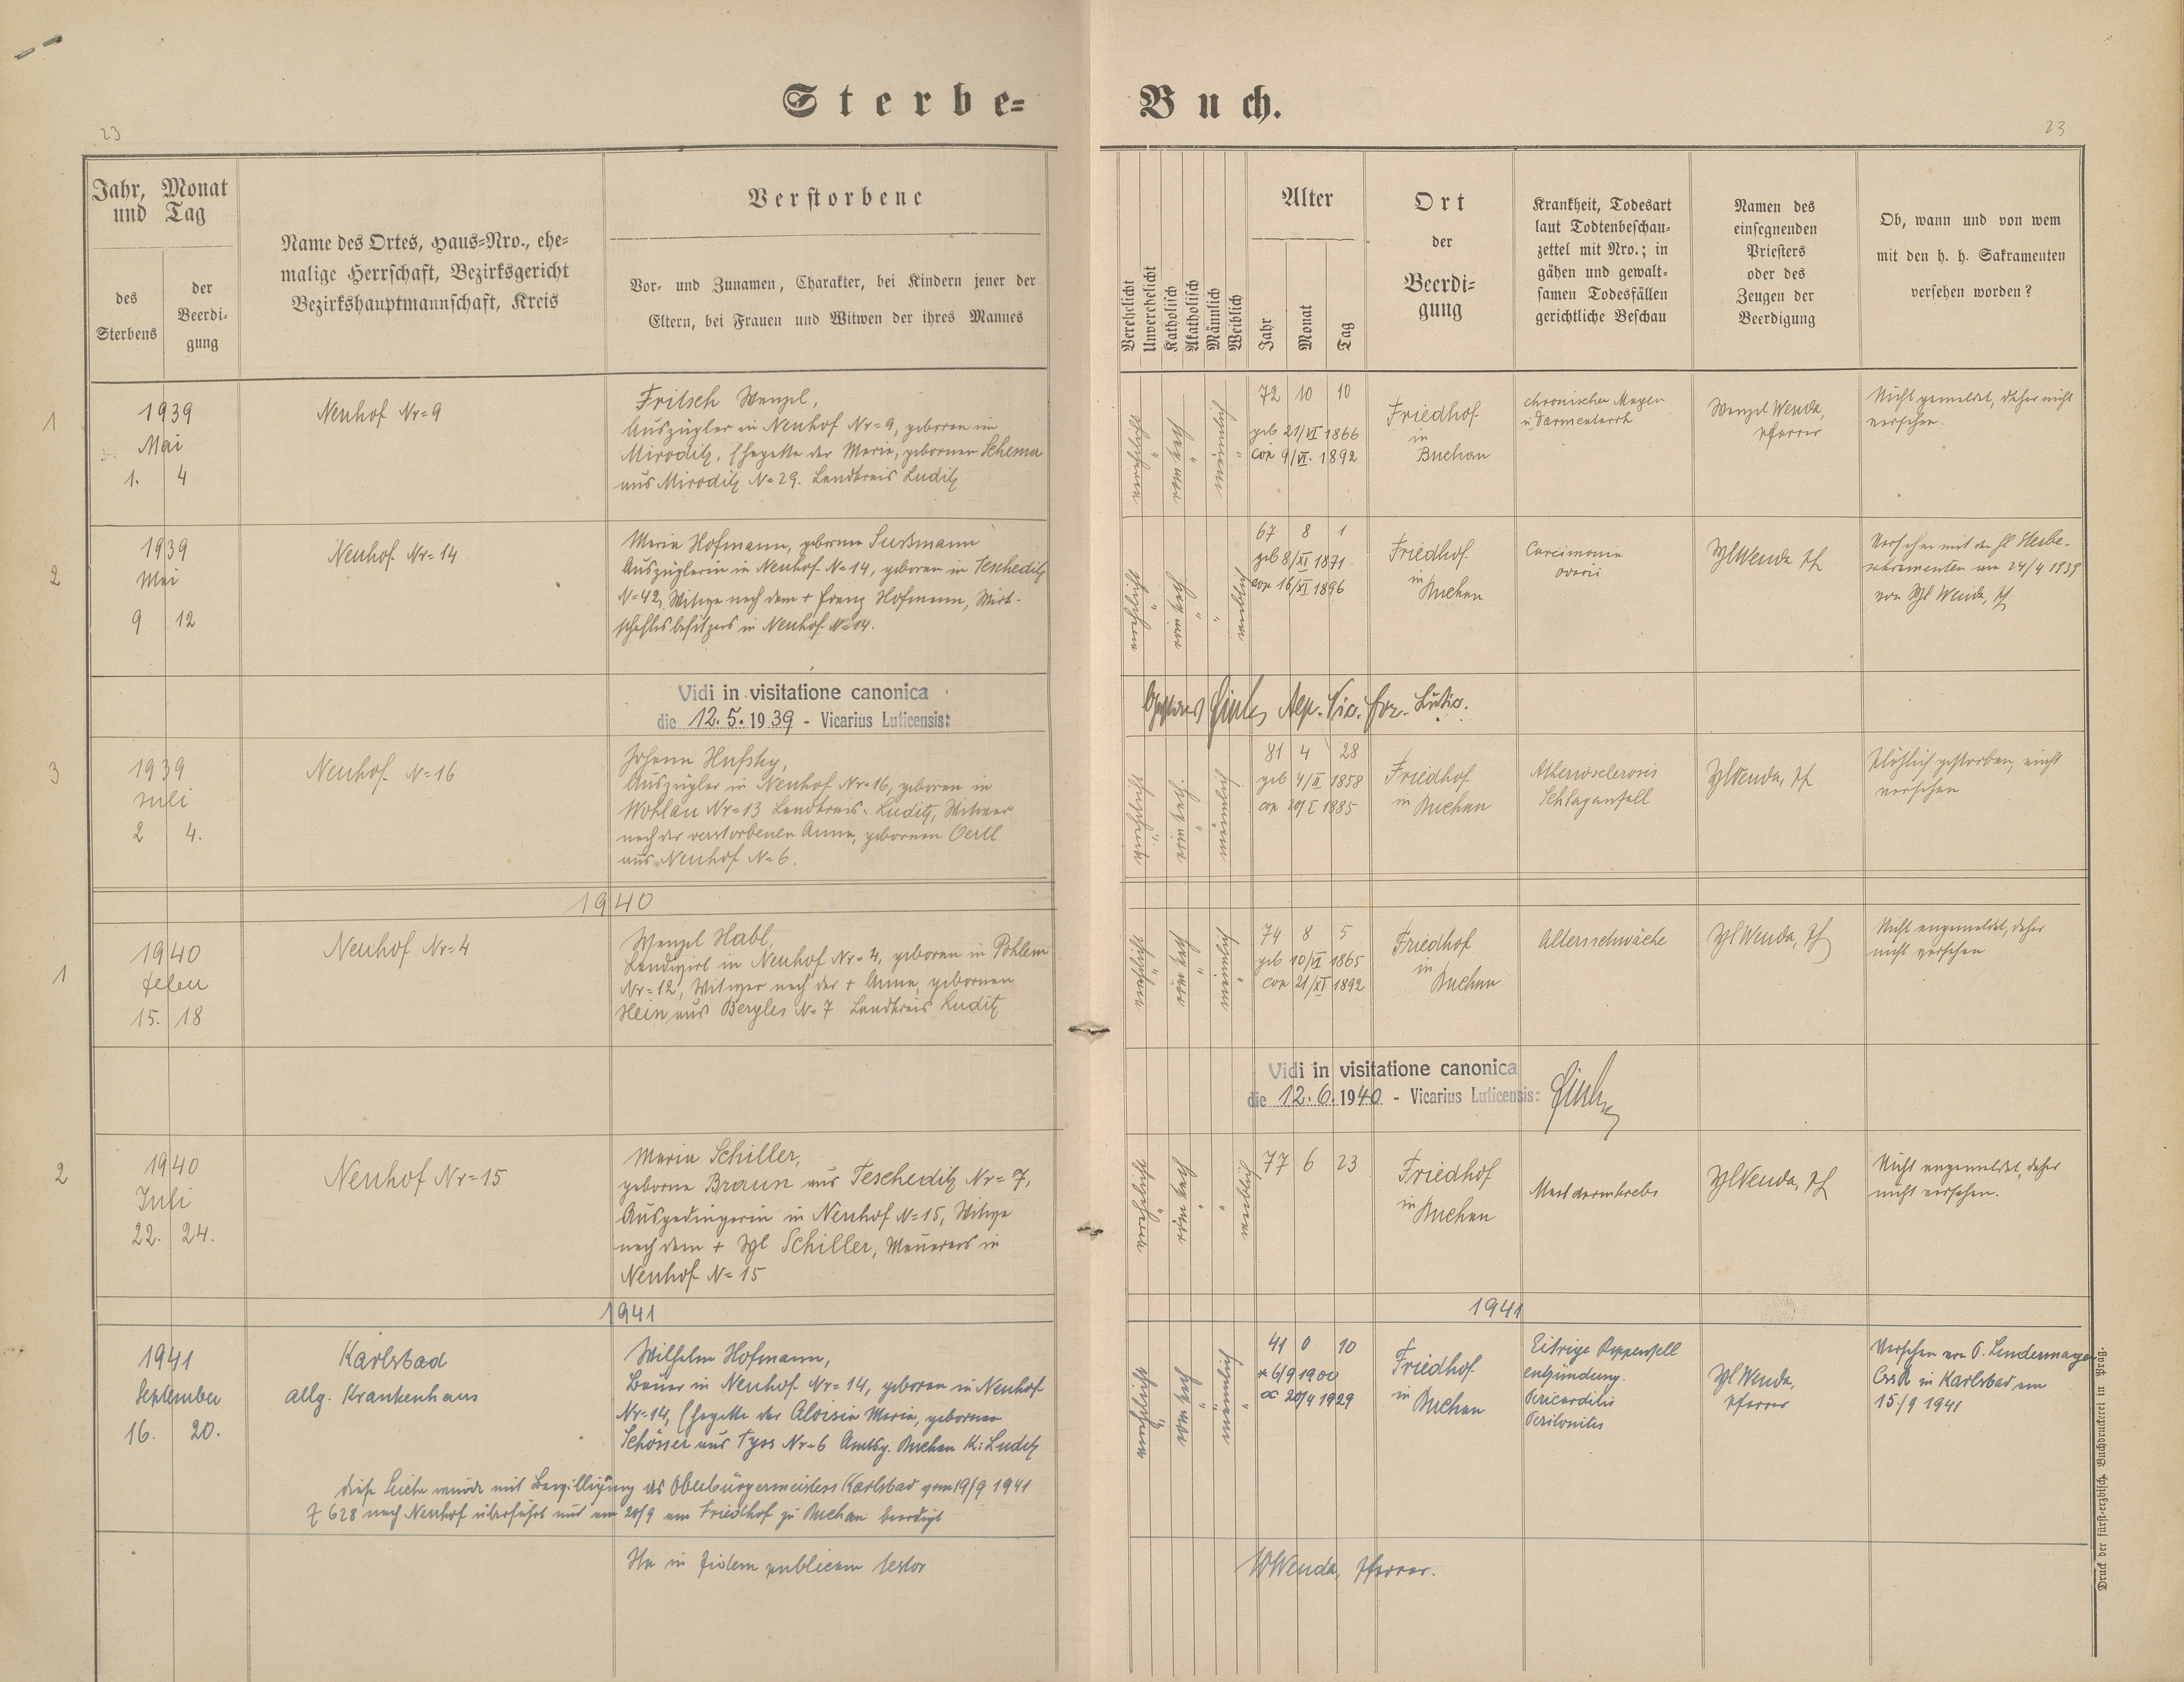 Sterbe=
Buch.
23
23
Jahr, Monat
und Tag
des
Sterbens
der
Beerdi-
gung
Name des Ortes, Haus=Nro., ehe=
malige Herrschaft, Bezirksgericht
Bezirkshauptmannschaft, Kreis
Verstorbene
Vor- und Zunamen, Charakter, bei Kindern jener der
Eltern, bei Frauen und Witwen der ihres Mannes
Verehelicht
Unverehelicht
Katholisch
Akatholisch
Männlich
Weiblich
Alter
Jahr
Monat
Tag
Ort
der
Beerdi-
gung
Krankheit, Todesart
laut Todtenbeschau-
zettel mit Nro.; in
gähen und gewalt-
samen Todesfällen
gerichtliche Beschau
Namen des
einsegnenden
Priesters
oder des
Zeugen der
Beerdigung
Ob, wann und von wem
mit den h. h. Sakramenten
versehen worden?
1
1939
Mai
1. 4
Neuhof Nr=9
Fritsch Wenzl,
Auszügler in Neuhof Nr=9, geboren in
Miroditz, Ehegatte der Marie, gebornen Schema
aus Miroditz N=29. Landkreis Luditz
verehelicht
röm kath
männlich
72 10 10
geb 21/VI 1866
cop 9/VI. 1892
Friedhof
in
Buchau
chronischer Magen
u Darmkatarrh
Wenzl Wenda,
Pfarrer
Nicht gemeldet, daher nicht
versehen.
2
1939
Mai
9 12
Neuhof Nr=14
Maria Hofmann, geborne Sussmann
Auszüglerin in Neuhof N=14, geboren in Tescheditz
N=42, Witwe nach dem + Franz Hofmann, Wirt-
schaftsbesitzers in Neuhof N=14.
verehelicht
röm kath
weiblich
67 8 1
geb 8/XI 1871
cop 16/XI 1896
Friedhof
in
Buchau
Carcinoma
ovarii
Wzl Wenda Pf
Versehen mit den hl Sterbe-
sakramenten am 24/4 1939
von Wzl Wenda, Pf
Vidi in visitatione canonica
die 12.5.1939 - Vicarius Luticensis:
3
1939
Juli
2 4.
Neuhof N=16
Johann Hufsky,
Auszügler in Neuhof Nr=16, geboren in
Wohlau Nr=13 Landkreis Luditz, Witwer
nach der verstorbenen Anna, gebornen Oertl
aus Neuhof N=6.
verehelicht
röm kath.
männlich
81 4 28
geb 4/II 1858
cop 20/I 1885
Friedhof
in Buchau
Atherosclerosis
Schlaganfall
Wzl Wenda, Pf
Plötzlich gestorben, nicht
versehen
1940
1
1940
15. 18
Neuhof Nr=4
Wenzl Habl,
Landwirt in Neuhof Nr=4, geboren in Pohlem
Nr=12, Witwer nach der + Anna, gebornen
Hein aus Bergles N=7 Landkreis Luditz
verehelicht
röm kath
männlich
74 8 5
geb 10/VI 1865
cop 21/XI 1892
Friedhof
in
Buchau
Altersschwäche
Wzl Wenda, Pf
Nicht angemeldet, daher
nicht versehen
Vidi in visitatione canonica
die 12.6.1940 - Vicarius Luticensis:
2
1940
Juli
22. 24.
Neuhof Nr=15
Maria Schiller,
geborne Braun aus Tescheditz Nr=7,
Ausgedingerin in Neuhof N=15, Witwe
nach dem + Wzl Schiller, Maurers in
Neuhof N=15
verehelicht
röm kath
weiblich
77 6 23
Friedhof
in Buchau
Mastdarmkrebs
Wzl Wenda, Pf
Nicht angemeldet, daher
nicht versehen.
1941
1941
1941
September
16. 20.
Karlsbad
allg. Krankenhaus
Wilhelm Hofmann,
Bauer in Neuhof Nr=14, geboren in Neuhof
Nr=14, Ehegatte der Aloisia Maria, gebornen
Schösser aus Tyss Nr=6 Amtsg. Buchau K: Luditz
verehelicht
röm kath
männlich
41 0 10
* 6/9 1900
∞ 20/4 1929
Friedhof
in Buchau
Eitrige Rippenfell
entzündung.
Pericarditis
Peritonitis
Wzl Wenda,
Pfarrer
Versehen von P. Lindermayer
CssR in Karlsbad am
15/9 1941
diese Leiche wurde mit Bewilligung des Oberbürgermeisters Karlsbad vom 19/9 1941
Z 628 nach Neuhof überführt und am 20/9 am Friedhof zu Buchau beerdigt
Ita in fidem publicam testor
W Wenda, Pfarrer.
Druck der fürst-erzbisch. Buchdruckerei in Prag.